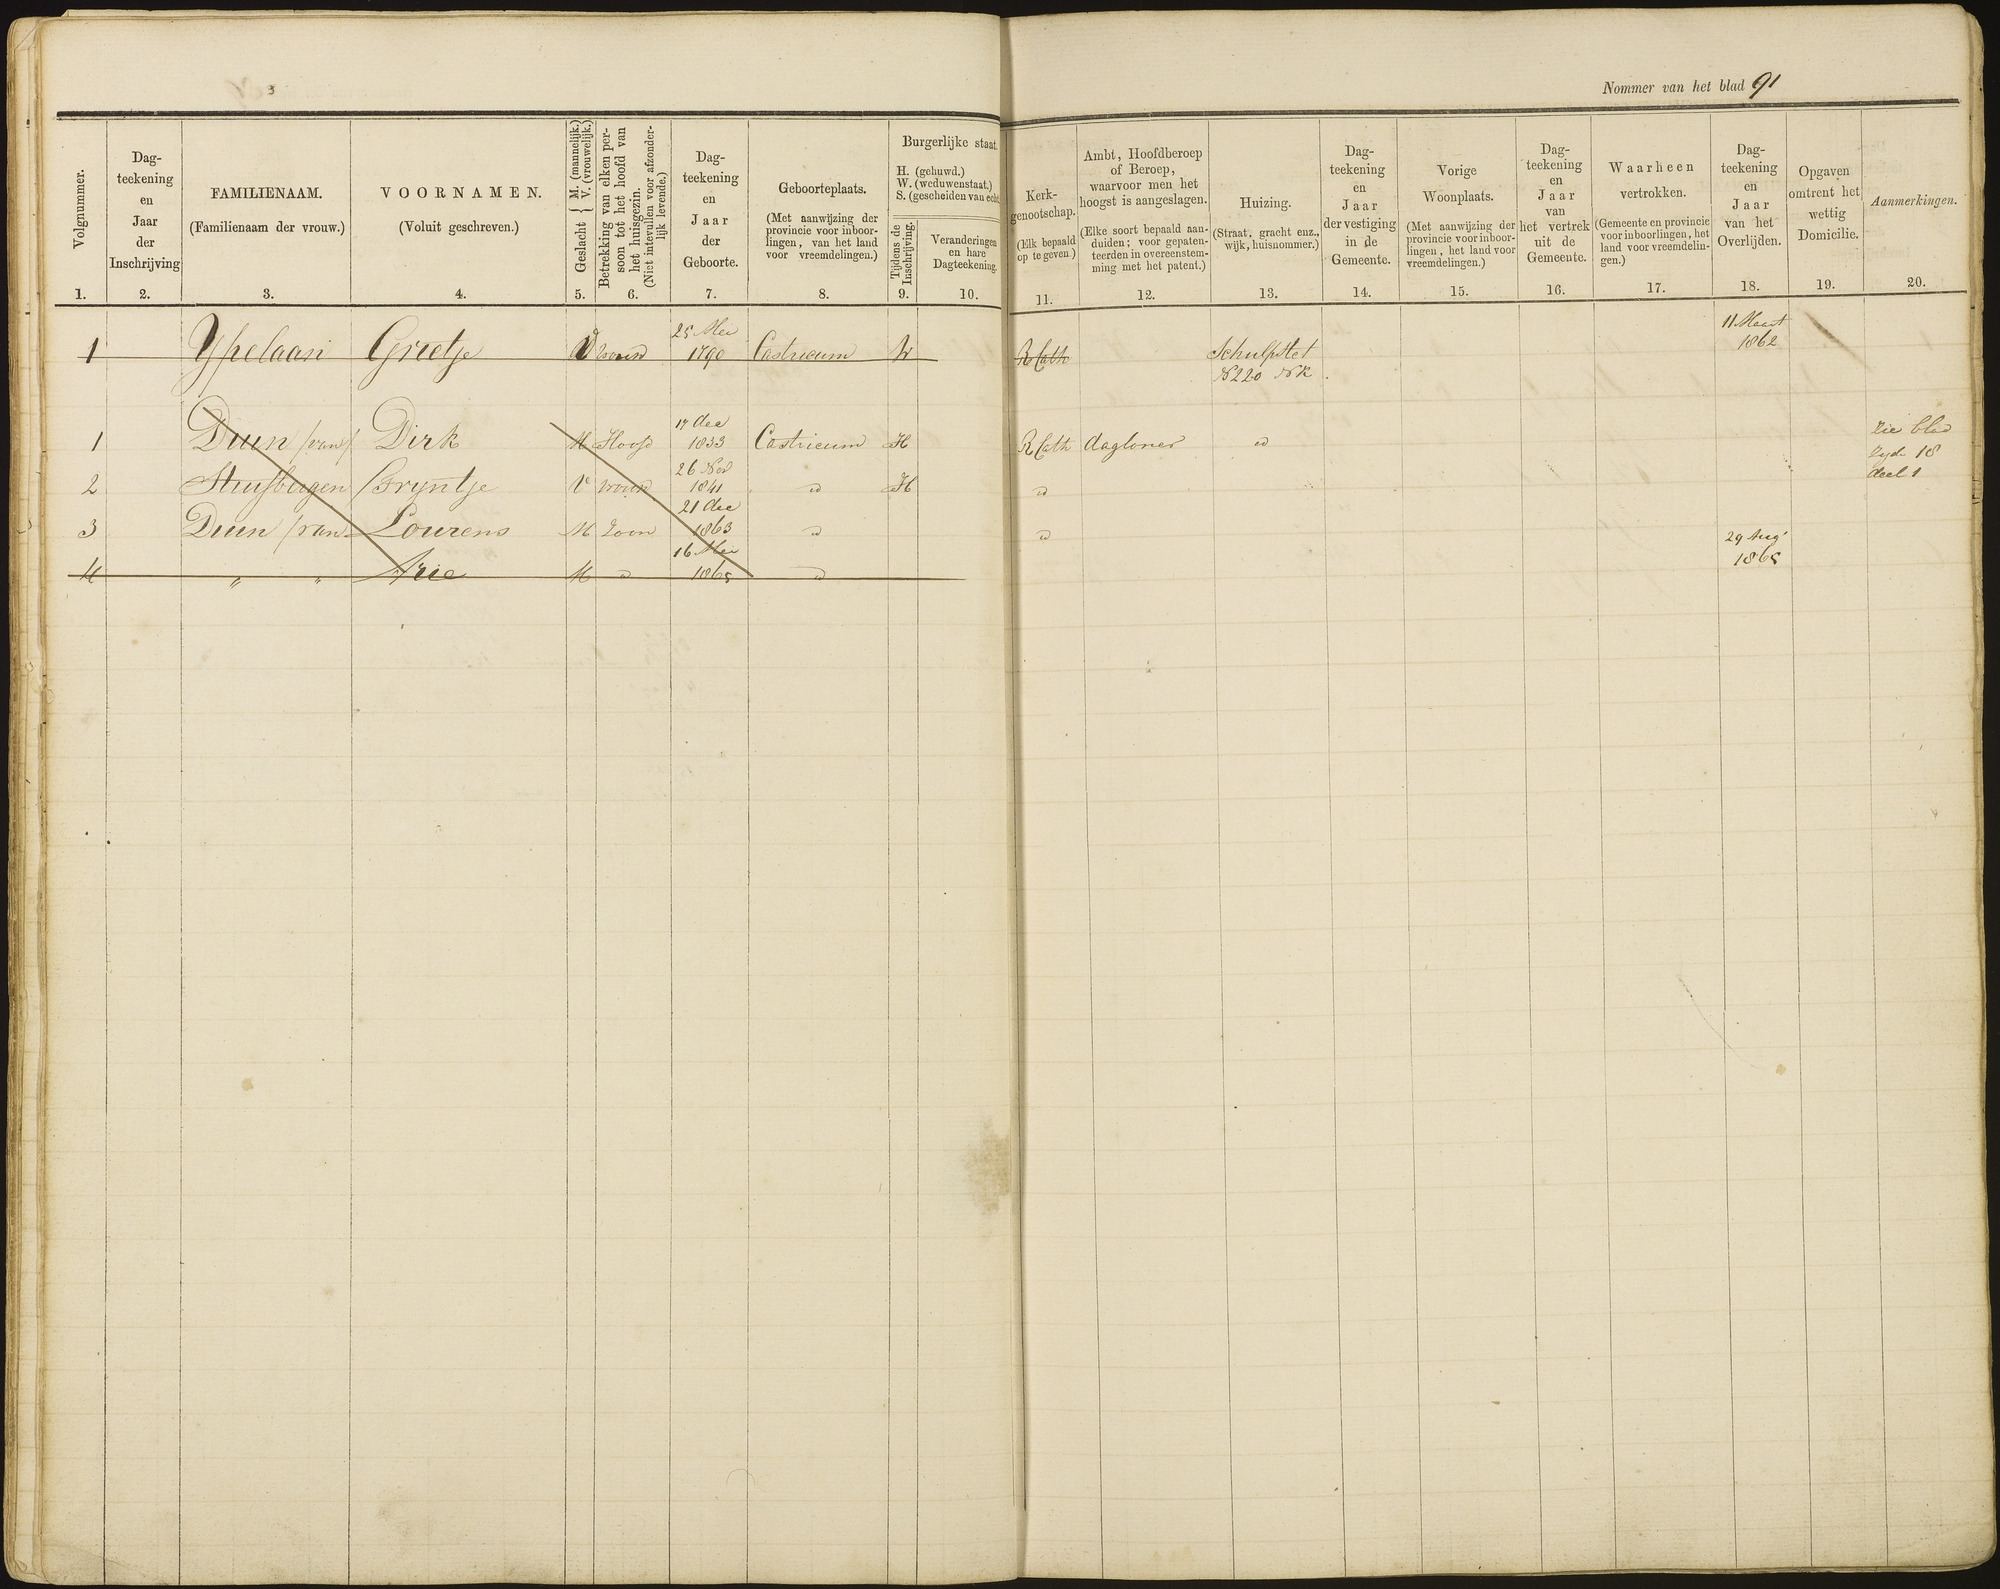 3
Nommer van het blad 91
Volgnummer.
1.
Dag-
teekening
en
Jaar
der
Inschrijving
2.
FAMILIENAAM.
(Familienaam der vrouw.)
3.
VOORNAMEN.
(Voluit geschreven.)
4.
Geslacht { M. (mannelijk.)
V. (vrouwelijk.)
5.
Betrekking van elken per-
soon tot het hoofd van
het huisgezin.
(Niet intevullen voor afzonder-
lijk levende.)
6.
Dag-
teekening
en
Jaar
der
Geboorte.
7.
Geboorteplaats.
(Met aanwijzing der
provincie voor inboor-
lingen, van het land
voor vreemdelingen.)
8.
Burgerlijke staat.
H. (gehuwd.)
W. (weduwenstaat.)
S. (gescheiden van echt.
Tijdens de
Inschrijving.
9.
Veranderingen
en hare
Dagteekening.
10.
Kerk-
genootschap.
(Elk bepaald
op te geven.)
11.
Ambt, Hoofdberoep
of Beroep,
waarvoor men het
hoogst is aangeslagen.
(Elke soort bepaald aan-
duiden; voor gepaten-
teerden in overeenstem-
ming met het patent.)
12.
Huizing.
(Straat, gracht enz.,
wijk, huisnommer.)
13.
Dag-
teekening
en
Jaar
der vestiging
in de
Gemeente.
14.
Vorige
Woonplaats.
(Met aanwijzing der
provincie voor inboor-
lingen, het land voor
vreemdelingen.)
15.
Dag-
teekening
en
Jaar
van
het vertrek
uit de
Gemeente.
16.
Waarheen
vertrokken.
(Gemeente en provincie
voor inboorlingen, het
land voor vreemdelin-
gen.)
17.
Dag-
teekening
en
Jaar
van het
Overlijden.
18.
Opgaven
omtrent het
wettig
Domicilie.
19.
Aanmerkingen.
20.
25 Mei 11 Maart
1 Ypelaan Grietje V vrouw 1790 Castricum W R Cath Schulpstet 1862
N 220 NK
17 dec
1 Duin /van/ Dirk M Hoofd 1833 Castricum H R Cath dagloner id Zie blad
Zyde 18
26 Nov deel 1
2 Stuifbergen Gryntje V vrouw 1841 id H id
21 dec
3 Duin /van Lourens M Zoon 1863 id id 29 Aug
16 Mei
4 " " Arie M id 1865 id 1865